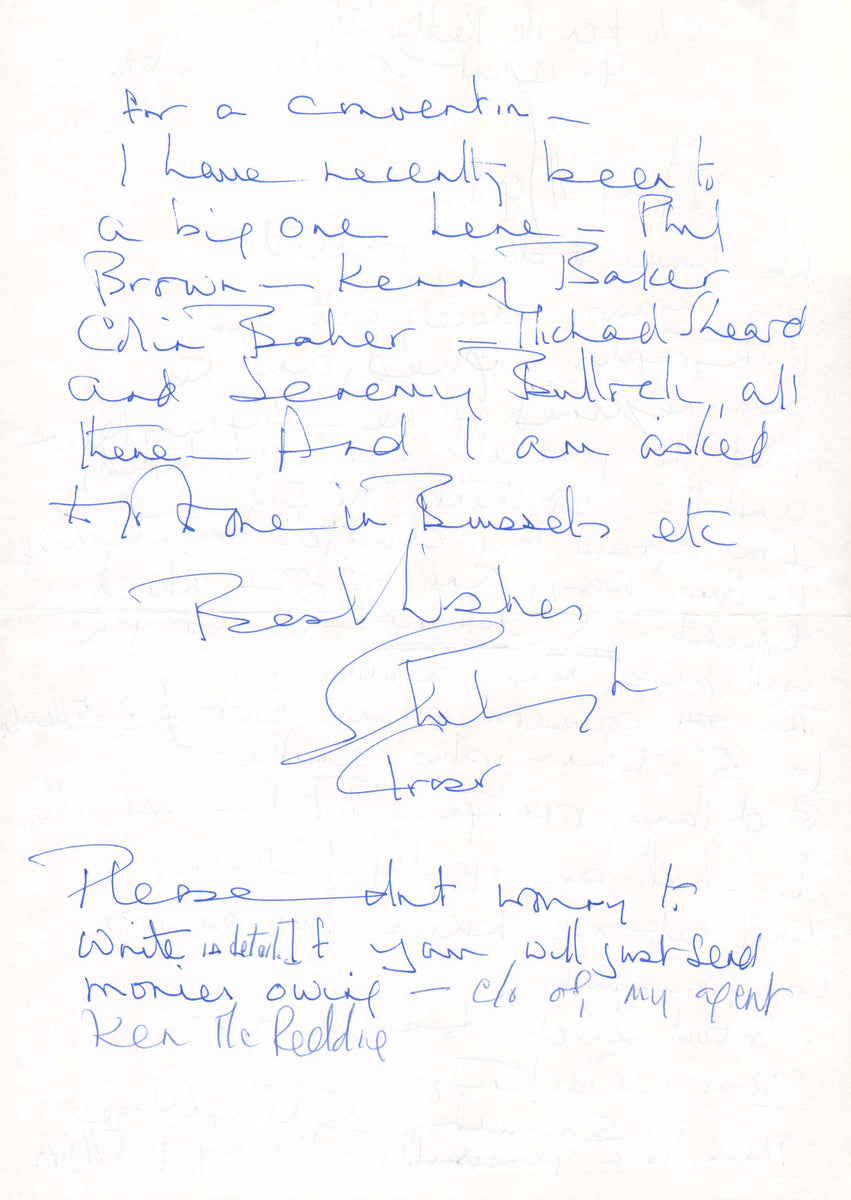 for a convention —
I have recently been to
a big one here — Phil
Brown — Kenny Baker
Colin Baker — Michael Sheard
and Jeremy Bulloch, all
there — And I am asked
to one in Brussels etc
Best Wishes
Shelagh
Fraser
Please — dont worry to
write in detail. If you will just send
monies owing — c/o of, my agent
Ken McReddie